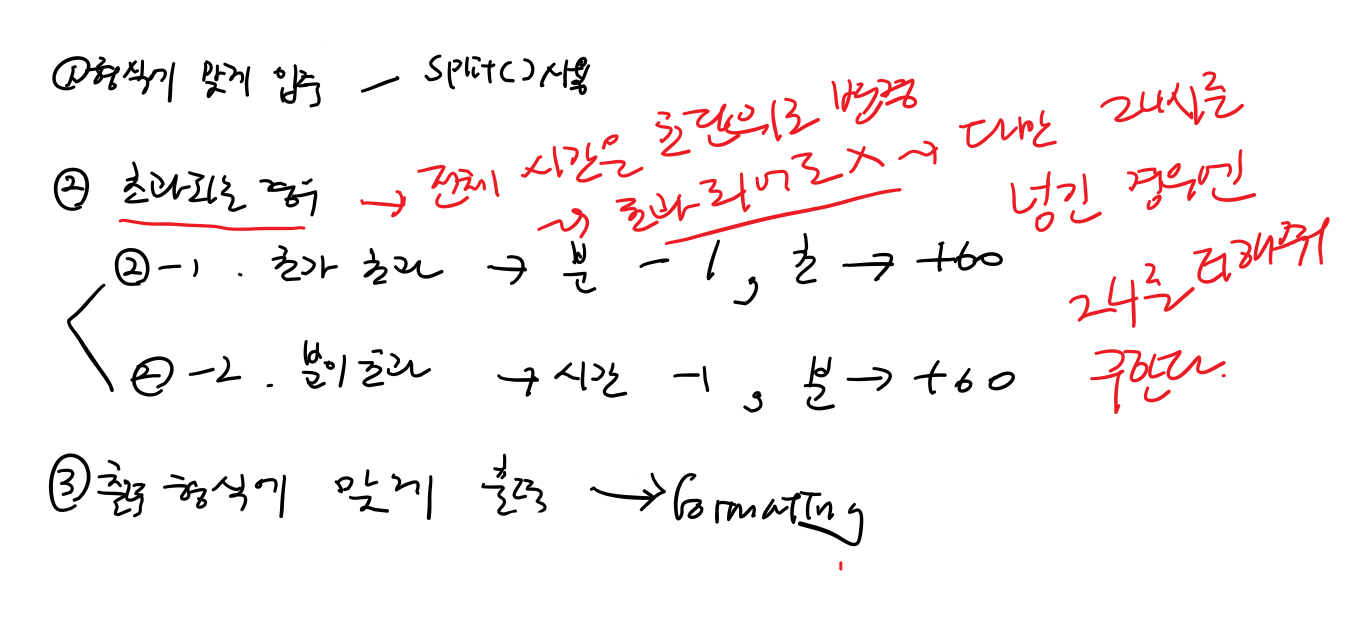 ① 형식에 맞게 입력 - split() 사용
② 초과되는 경우 → 전체 시간을 초단위로 변경
→ 초과 되어도 X → 다만 24시를
넘긴 경우엔
24를 더해줘
구한다.
②-1. 초가 초과 → 분 -1, 초 → +60
②-2. 분이 초과 → 시간 -1, 분 → +60
③ 출력 형식에 맞게 출력 → formatting